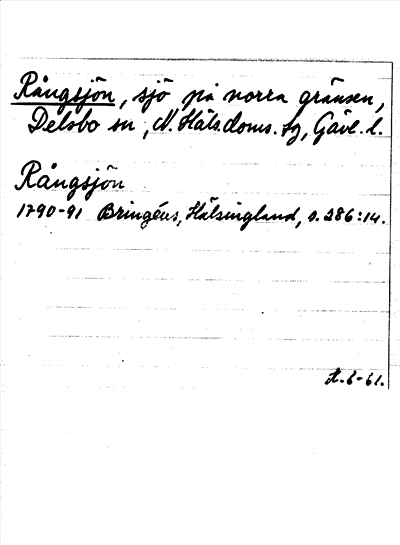 Rångsjön, sjö på norra gränsen,
Delsbo sn, N. Häls. doms. tg, Gävl. l.
Rångsjön
1790-91 Bringéus, Hälsingland, s. 286:14.
H. 6-61.